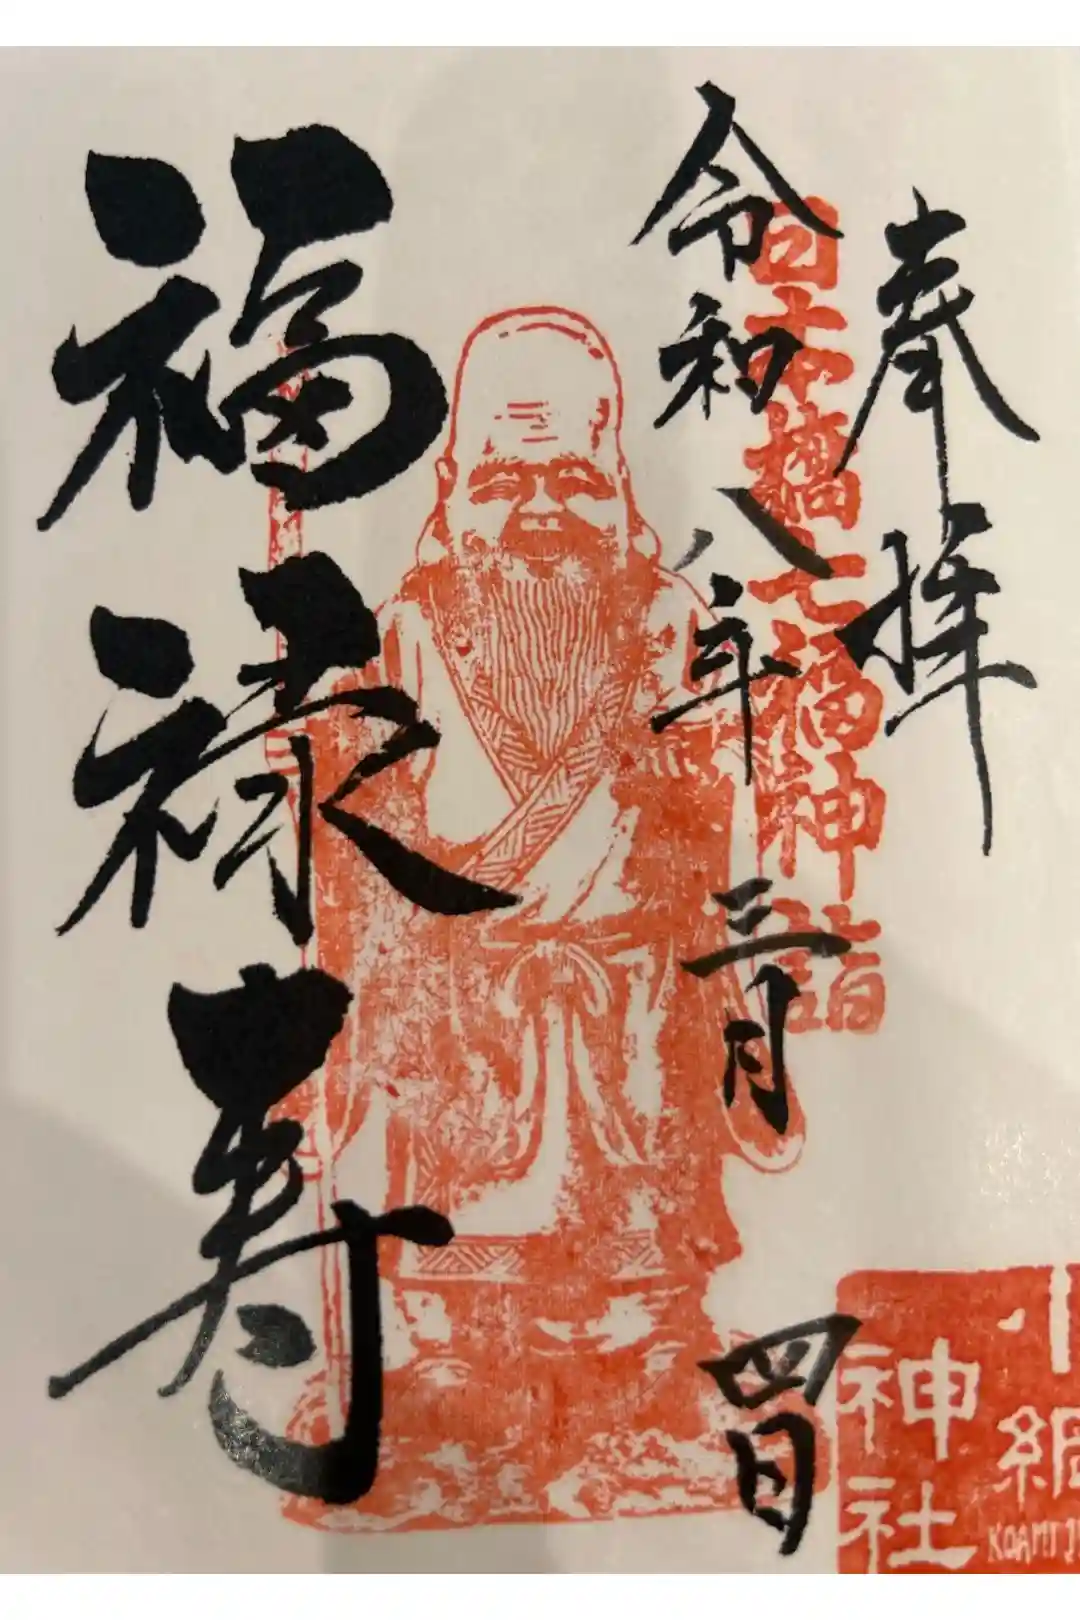 奉拝
日本橋七福神詣
令和八年三月四日
福禄寿
小網
神社
KOAMI